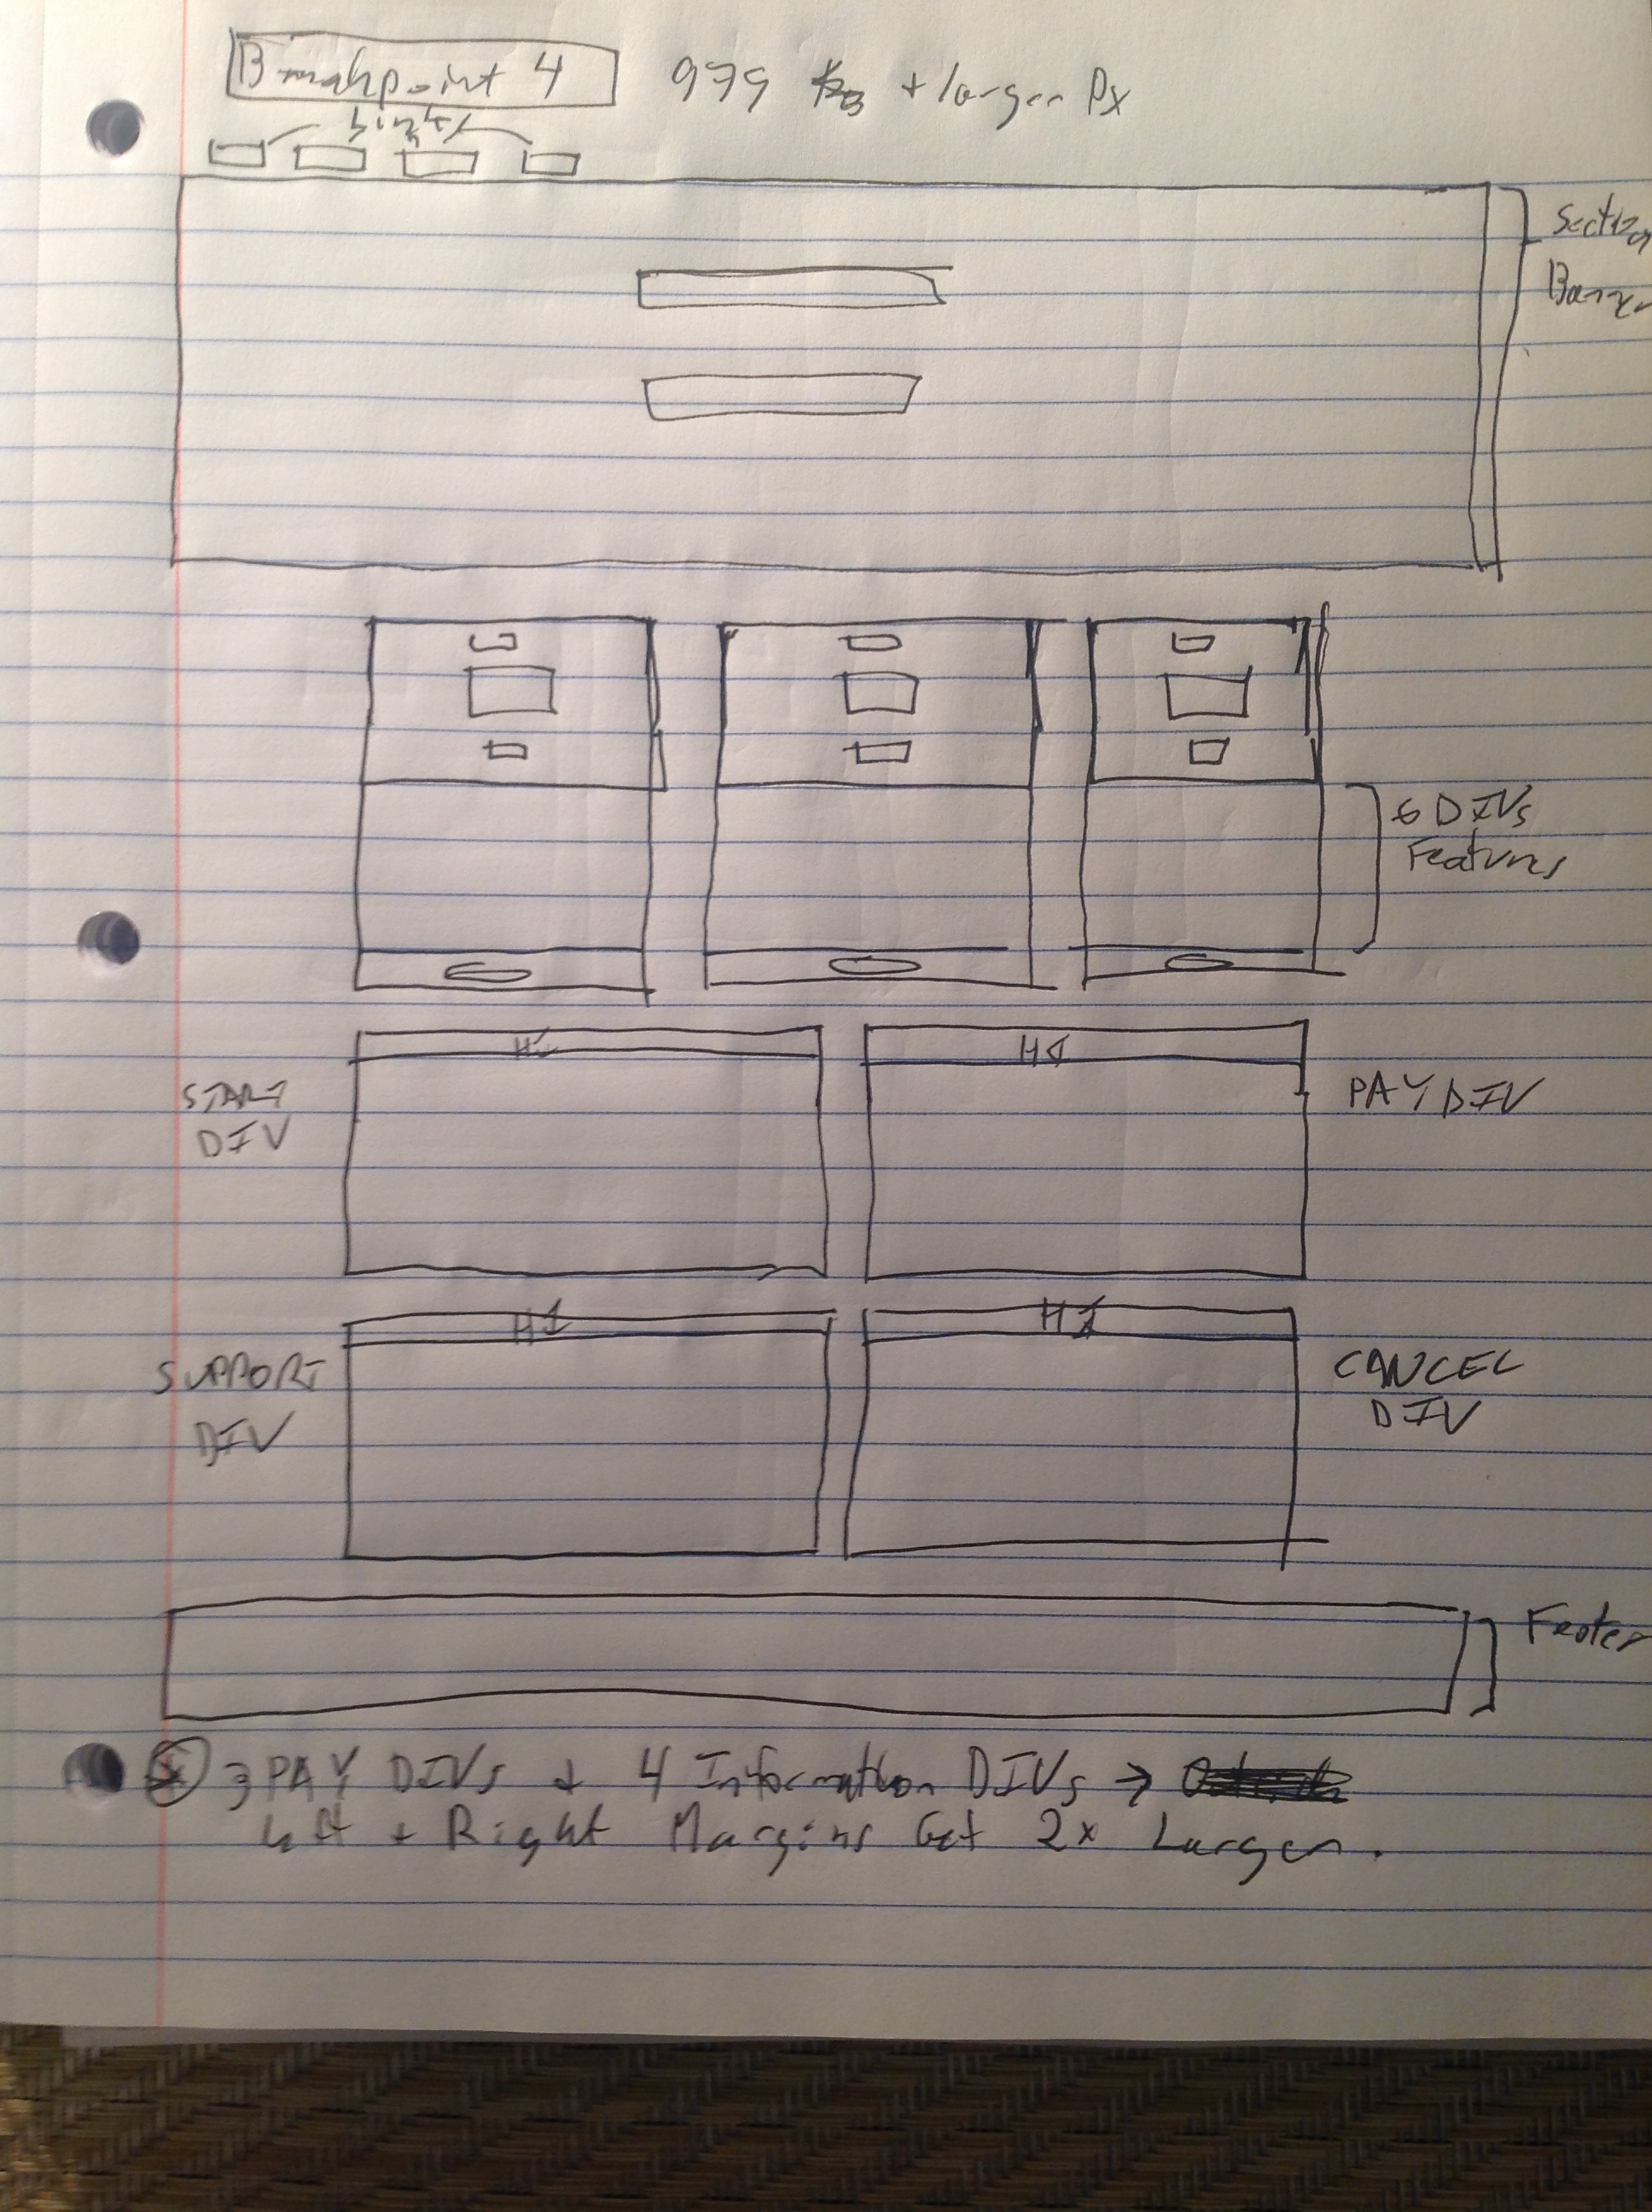 Breakpoint 4 979 + larger Px
Links
Section
Banner
6 DIVs
Features
H1
H1
START
DIV
PAY DIV
H1
H1
SUPPORT
DIV
CANCEL
DIV
Footer
3 PAY DIVs + 4 Information DIVs →
Left + Right Margins Get 2x Larger.